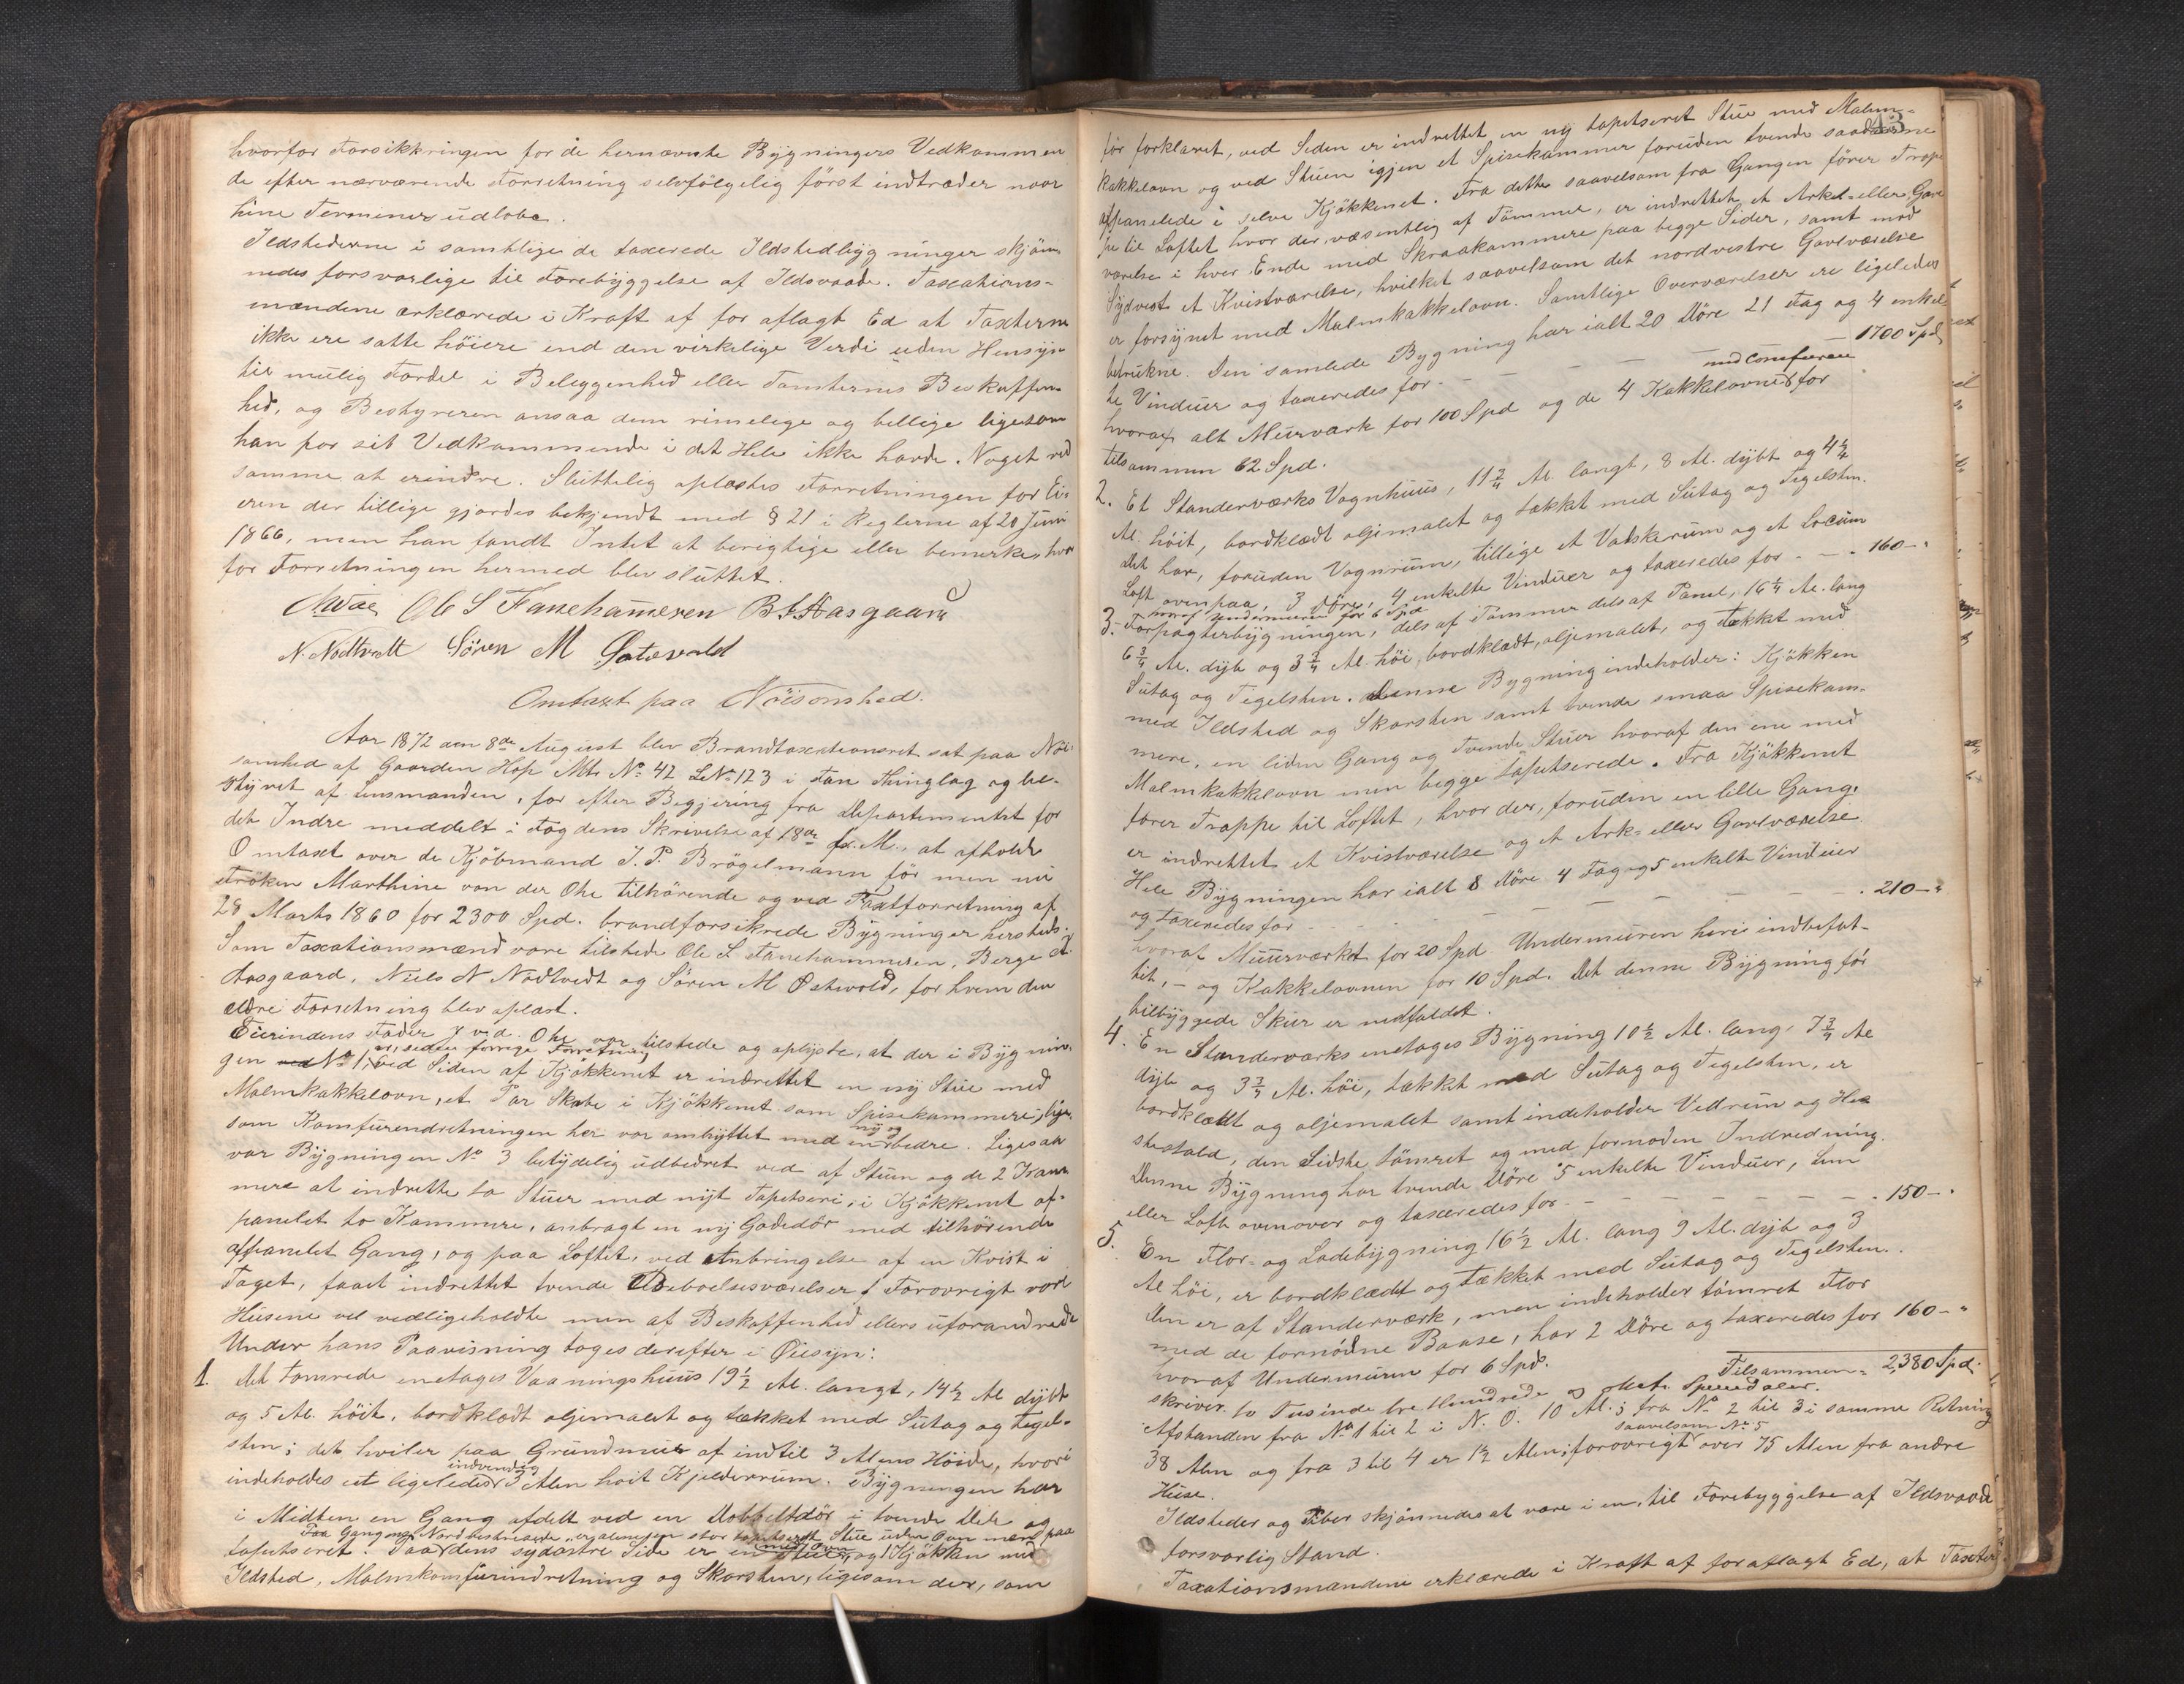 hvorfor Forsikkringen for de hernævnte Bygningers Vedkommen
de efter nærværende Forretning selvfölgelig först indtræder naar
hine Terminer udlobe.
Ildstederne i samtlige de taxerede Ildstedbygninger skjön
nedes forsvarlige til Forebyggelse af Ildsvaade. Taxations-
mændene erklærede i Kraft af för aflagt Ed at Taxterne
ikke ere satte höiere end den virkelige Verdi uden Hensyn
til mulig Fordel i Beleggenhed eller Tomternes Beskaffen-
hed, og Bestyreren ansaa dem rimelige og billige ligesom
han for sit Vedkommende i det Hele ikke havde Noget ved
samme at erindre. Sluttelig oplæstes Forretningen for Ei-
eren der tillige gjordes bekjendt med § 21 i Reglerne af 20 Juni
1866, men han fandt Intet at berigtige eller bemerke, hvor
for Forretningen hermed blev sluttet.
Ole S Fanehameren B. Aasgaard
N. Nödtvedt Sören M
Omtaxt paa Nöisomhed.
Aar 1872 den 8de August blev Brandtaxationsret sat paa Nöi-
somhed af Gaarden Hop Mtr. No 42 LNo 123 i Fan Thinglag og be-
styret af Lensmanden, for efter Begjering fra Departementet for
det Indre meddelt i Fogdens Skrivelse af 18de f. M., at afholde
Omtaxt over de Kjöbmand J. P. Brögelmann för men nu
Fröken Marthine von der Ohe tilhörende og ved Taxtforretning af
28 Marts 1860 for 2300 Spd. brandforsikrede Bygninger hersteds.
Som Taxationsmænd vare tilstede Ole S Fanehammeren, Berge
Aasgaard, Niels N Nödtvedt og Sören M Östvold, for hvem den
ældre Forretning blev oplæst.
Eierindens Fader J v. d. Ohe var tilstede og oplyste, at der i Bygnin-
er, siden forrige Forretning
gen ved No 1, ved Siden af Kjökkenet er indrettet en ny Stue med
Malmkakkelovn, et Par Skabe i Kjökkenet som Spisekammere, lige-
ny og
som Komfurendretningen her var ombyttet med en bedre. Ligesaa
var Bygningen No 3 betydelig udbedret ved af Stuen og de 2 Kam
mere at indrette to Stuer med nyt Tapetseri, i Kjökkenet af-
panelet to Kammere, anbragt en ny Gadedör med tilhörende
afpanelet Gang, og paa Loftet, ved Anbringelse af en Kvist i
Taget, faaet indrettet tvende Beboelsesværelser. Forovrigt vare
Husene vel vedligeholdte men af Beskaffenhed ellers uforandrede
Under hans Paavisning toges derefter i Öiesyn:
1. Det tömrede enetages Vaaningshuus 19 1/2 Al. langt, 14 1/2 Al dybt
og 5 Al. höit, bordklædt oljemalet og tækket med Sutag og Tegel-
sten; det hviler paa Grundmur af indtil 3 Alens Höide, hvori
indvendig
indeholdes et ligeledes 3 Alen hoit Kjelderrum. Bygningen har
i Midten en Gang afdelt ved en Dobbeltdör i tvende Dele og
Paa Gangens Nordvestre Side, er en stor tapetseret Stue uden Ovn paa
tapetseret. Paa dens sydöstre Side er en Stue med Ovn, og 1 Kjökken med
Ildsted, Malmkomfurindretning og Skorsten, ligesom der, som
43
för forklaret, ved Siden er indrettet en ny tapetseret Stue med Malm-
kakkelovn og ved Stuen igjen et Spisekammer foruden tvende saadanne
afpanelede i selve Kjökkenet. Fra dette saavelsom fra Gangen förer Trap
pe til Loftet hvor der, væsentlig af Tömmer, er indrettet et Arket- eller Gavl
værelse i hver Ende med Skraakammere paa begge Sider, samt mod
Sydvest et Kvistværelse, hvilket saavelsom det nordvestre Gavlværelse
er forsynet med Malmkakkelovn. Samtlige Overværelser ere ligeledes
betrukne. Den samlede Bygning har ialt 20 Döre 21 Fag og 4 enkel
te Vinduer og taxeredes for - - - - - 1700 Spd
med Comfuren
hvoraf alt Muurværk for 100 Spd og de 4 Kakkelovne for
tilsammen 62 Spd.
2. Et Standerværks Vognhuus, 11 3/4 Al. langt, 8 Al. dybt og 4 1/4
Al. höit, bordklædt oljemalet og tækket med Sutag og Tegelsten.
Det har, foruden Vognrum, tillige et Vadskerum og et Locum
Loft ovenpaa, 3 Döre, 4 enkelte Vinduer og taxeredes for - - - 160 - "
hvoraf Undermuren for 6 Spd
3. Forpagterbygningen, dels af Tömmer dels af Panel, 16 1/4 Al. lang
6 3/4 Al. dyb og 3 3/4 Al. höi, bordklædt, oljemalet, og tækket med
Sutag og Tegelsten. Denne Bygning indeholder: Kjökken
med Ildsted og Skorsten samt tvende smaa Spisekam-
mere, en liden Gang og tvende Stuer hvoraf den ene med
Malmkakkelovn men begge tapetserede. Fra Kjökkenet
förer Trappe til Loftet, hvor der, foruden en lille Gang,
er indrettet et Kvistværelse og et Ark- eller Gavlværelse.
Hele Bygningen har ialt 8 Döre 4 Fag og 5 enkelte Vinduer
og taxeredes for - - - - - - - 210 - "
hvoraf Muurværket for 20 Spd Undermuren heri indbefat-
tet, - og Kakkelovnen for 10 Spd. Det denne Bygning för
tilbyggede Skur er nedfaldet.
4. En Standerværks enetages Bygning 10 1/2 Al. lang, 7 3/4 Al
dyb og 3 3/4 Al. höi, tækket med Sutag og Tegelsten, er
bordklædt og oljemalet samt indeholder Vedrum og He
stestald, den Sidste tömret og med fornöden Indredning.
Denne Bygning har tvende Döre 5 enkelte Vinduer, Lem
eller Loft ovenover og taxeredes for - - - - - - 150 - "
5. En Flor- og Ladebygning 16 1/2 Al. lang 9 Al. dyb og 3
Al höi, er bordklædt og tækket med Sutag og Tegelsten.
Den er af Standerværk, men indeholder tömret Flor
med de fornödne Baase, har 2 Döre og taxeredes for 160 - "
hvoraf Undermuren for 6 Spd.
Tilsammen - 2,380 Spd.
skriver to Tusinde tre Hundrede og otteti Speciedaler.
Afstanden fra No 1 til 2 i N. O. 10 Al.; fra No 2 til 3 i samme Retning
saavelsom No 5
38 Alen og fra 3 til 4 er 1 1/2 Alen; forovrigt over 75 Alen fra andre
Huse.
Ildsteder og Piber skjönnedes at være i en, til Forebyggelse af Ildsvaade
forsvarlig Stand.
Taxationsmændene erklærede i Kraft af för aflagt Ed, at Taxter